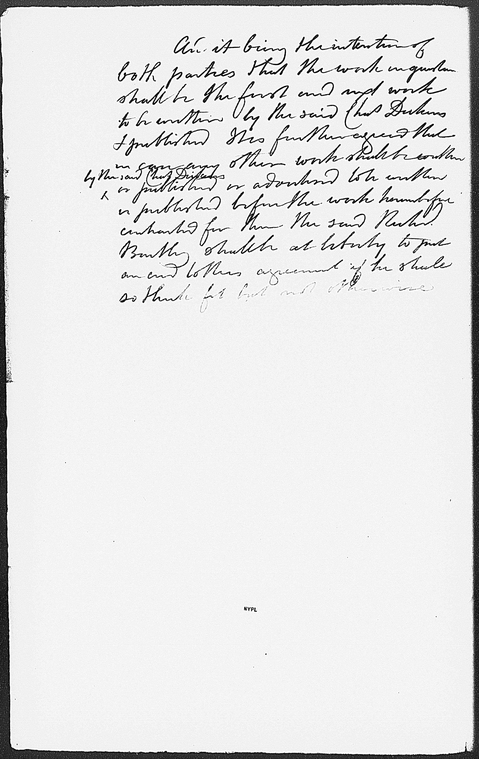 it being the intention of
both parties that the work in question
shall be the first and next work
to be written by the said Chas Dickens
& published It is further agreed that
in case any other work shall be written
by the said Chas Dickens
or published or advertised to be written
or published before the work hereinbefore
contracted for then the said Richd
Bentley shall be at liberty to put
an end to this agreement if he shall
so think fit but not otherwise
NYPL